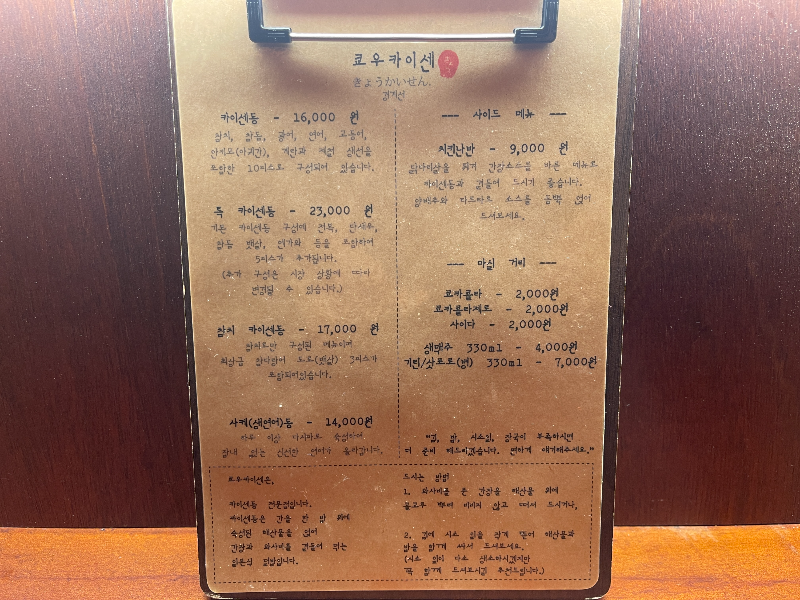 쿄우카이센
きょうかいせん.
카이센동 - 16,000 원
참치, 참돔, 광어, 연어, 고등어,
포함한 10피스로 구성되어 있습니다.
특 카이센동 - 23,000 원
기본 카이센동 구성에 전복, 단새우,
참돔 뱃살, 등을 포함하여
5피스가 추가됩니다.
(추가 구성은 시장 상황에 따라
변경될 수 있습니다.)
참치 카이센동 - 17,000 원
참치로만 구성된 메뉴이며
최상급 참다랑어 도로(뱃살) 3피스가
포함되어있습니다.
사케(생연어)동 - 14,000원
하루 이상 다시마로 숙성하여
잡내 없는 신선한 연어가 올라갑니다.
--- 사이드 메뉴 ---
치킨난반 - 9,000 원
닭다리살을 튀겨 간장소스를 바른 메뉴로
카이센동과 곁들여 드시기 좋습니다.
양배추와 타르타르 소스를 듬뿍 얹어
드셔보세요.
--- 마실 거리 ---
코카콜라 - 2,000원
코카콜라제로 - 2,000원
사이다 - 2,000원
생맥주 330ml - 4,000원
기린/삿포로(병) 330ml - 7,000원
"김, 밥, 시소잎, 장국이 부족하시면
더 준비 해드리겠습니다. 편하게 얘기해주세요."
쿄우카이센은,
카이센동 전문점입니다.
카이센동은 간을 한 밥 위에
숙성된 해산물을 얹어
간장과 와사비를 곁들여 먹는
일본식 덮밥입니다.
드시는 방법
1. 와사비를 푼 간장을 해산물 위에
골고루 뿌려 비비지 않고 떠서 드시거나,
2. 김에 시소 잎을 함께 얹어 해산물과
밥을 함께 싸서 드셔보세요.
(시소 잎이 다소 생소하시겠지만
꼭 함께 드셔보시길 추천드립니다.)